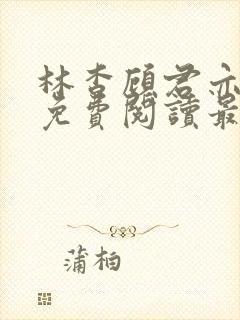 林杏顧君亦
免費閱讀最
蒲柏